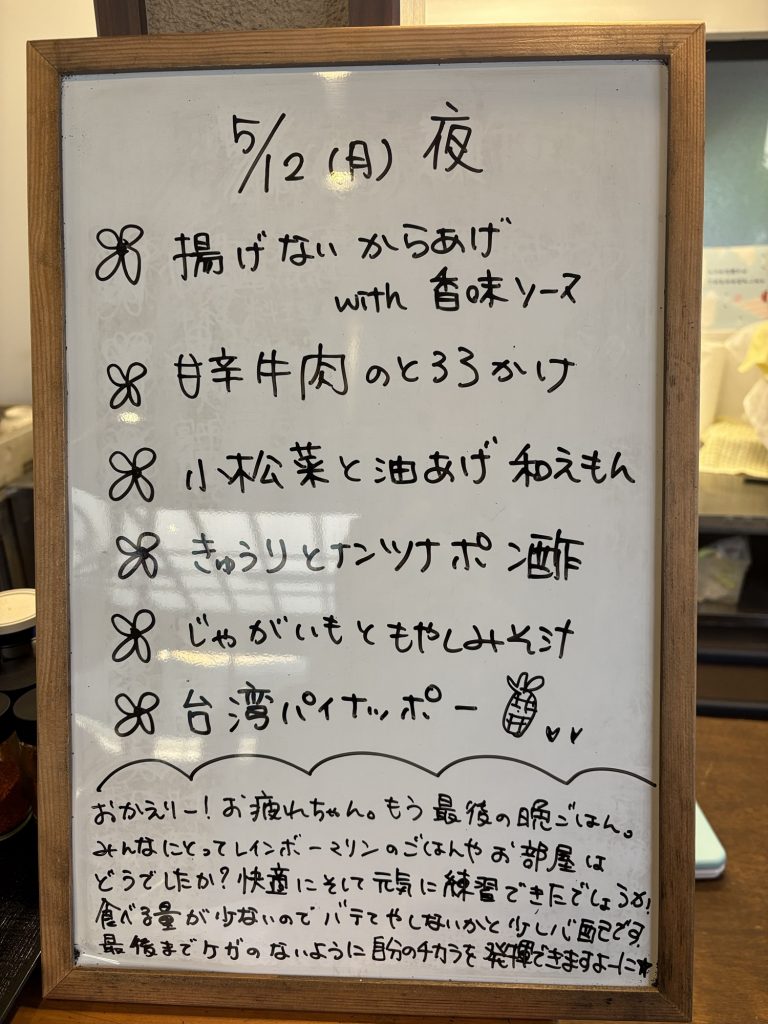 5/12(月) 夜
揚げない からあげ
with 香味ソース
甘辛牛肉のとろろかけ
小松菜と油あげ 和えもん
きゅうりとナンツナポン酢
じゃがいもともやしみそ汁
台湾パイナッポー
おかえりー!お疲れちゃん。もう最後の晩ごはん。
みんなにとってレインボーマリンのごはんやお部屋は
どうでしたか?快適にそして元気に練習できたでしょうか!
食べる量が少ないのでバテてやしないかと少し心配です。
最後までケガのないように自分のチカラを発揮できますよーに★